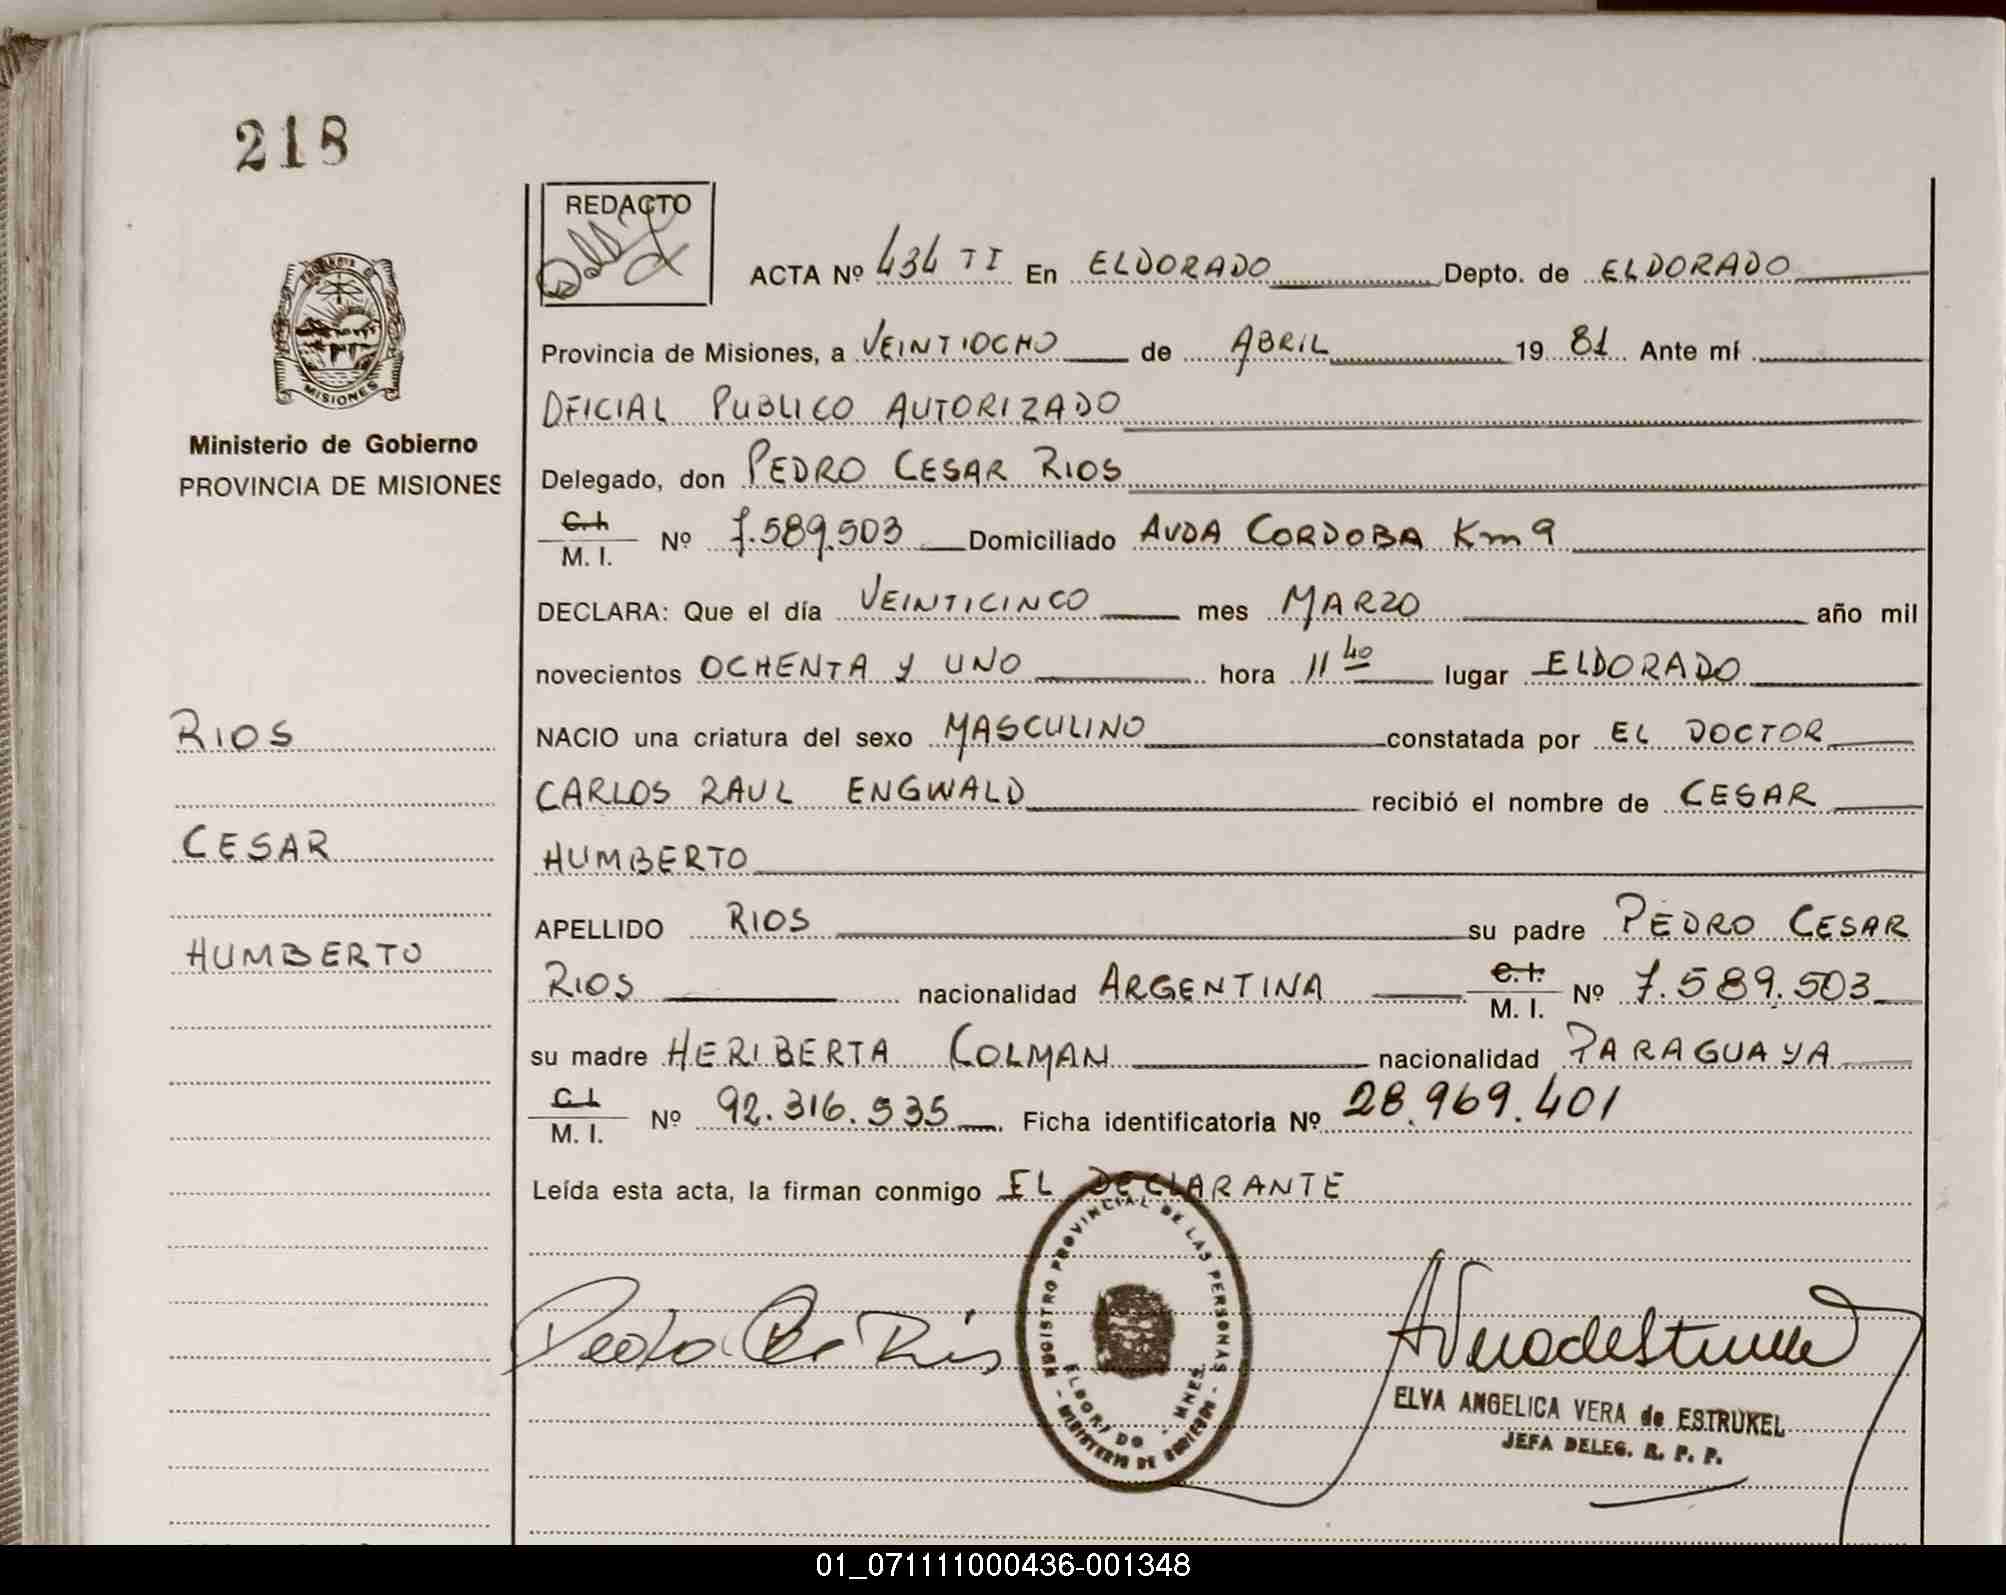 218
REDACTO
ACTA Nº 434 TI En ELDORADO Depto. de ELDORADO
Provincia de Misiones, a VEINTIOCHO de ABRIL 1981 Ante mí
OFICIAL PUBLICO AUTORIZADO
Ministerio de Gobierno
PROVINCIA DE MISIONES
MISIONES
Delegado, don PEDRO CESAR RIOS
C.I. M. I. Nº 7.589.503 Domiciliado AVDA CORDOBA Km 9
DECLARA: Que el día VEINTICINCO mes MARZO año mil
novecientos OCHENTA Y UNO hora 11 40 lugar ELDORADO
RIOS
NACIO una criatura del sexo MASCULINO constatada por EL DOCTOR
CARLOS RAUL ENGWALD recibió el nombre de CESAR
CESAR
HUMBERTO
APELLIDO RIOS su padre PEDRO CESAR
HUMBERTO
RIOS nacionalidad ARGENTINA C.I. M. I. Nº 7.589.503
su madre HERIBERTA COLMAN nacionalidad PARAGUAYA
C.I. M. I. Nº 92.316.535 Ficha identificatoria Nº 28.969.401
Leída esta acta, la firman conmigo EL DECLARANTE
REGISTRO PROVINCIAL DE LAS PERSONAS
ELDORADO - MNES.
MINISTERIO DE GOBIERNO
ELVA ANGELICA VERA de ESTRUKEL
JEFA DELEG. R. P. P.
01_071111000436-001348